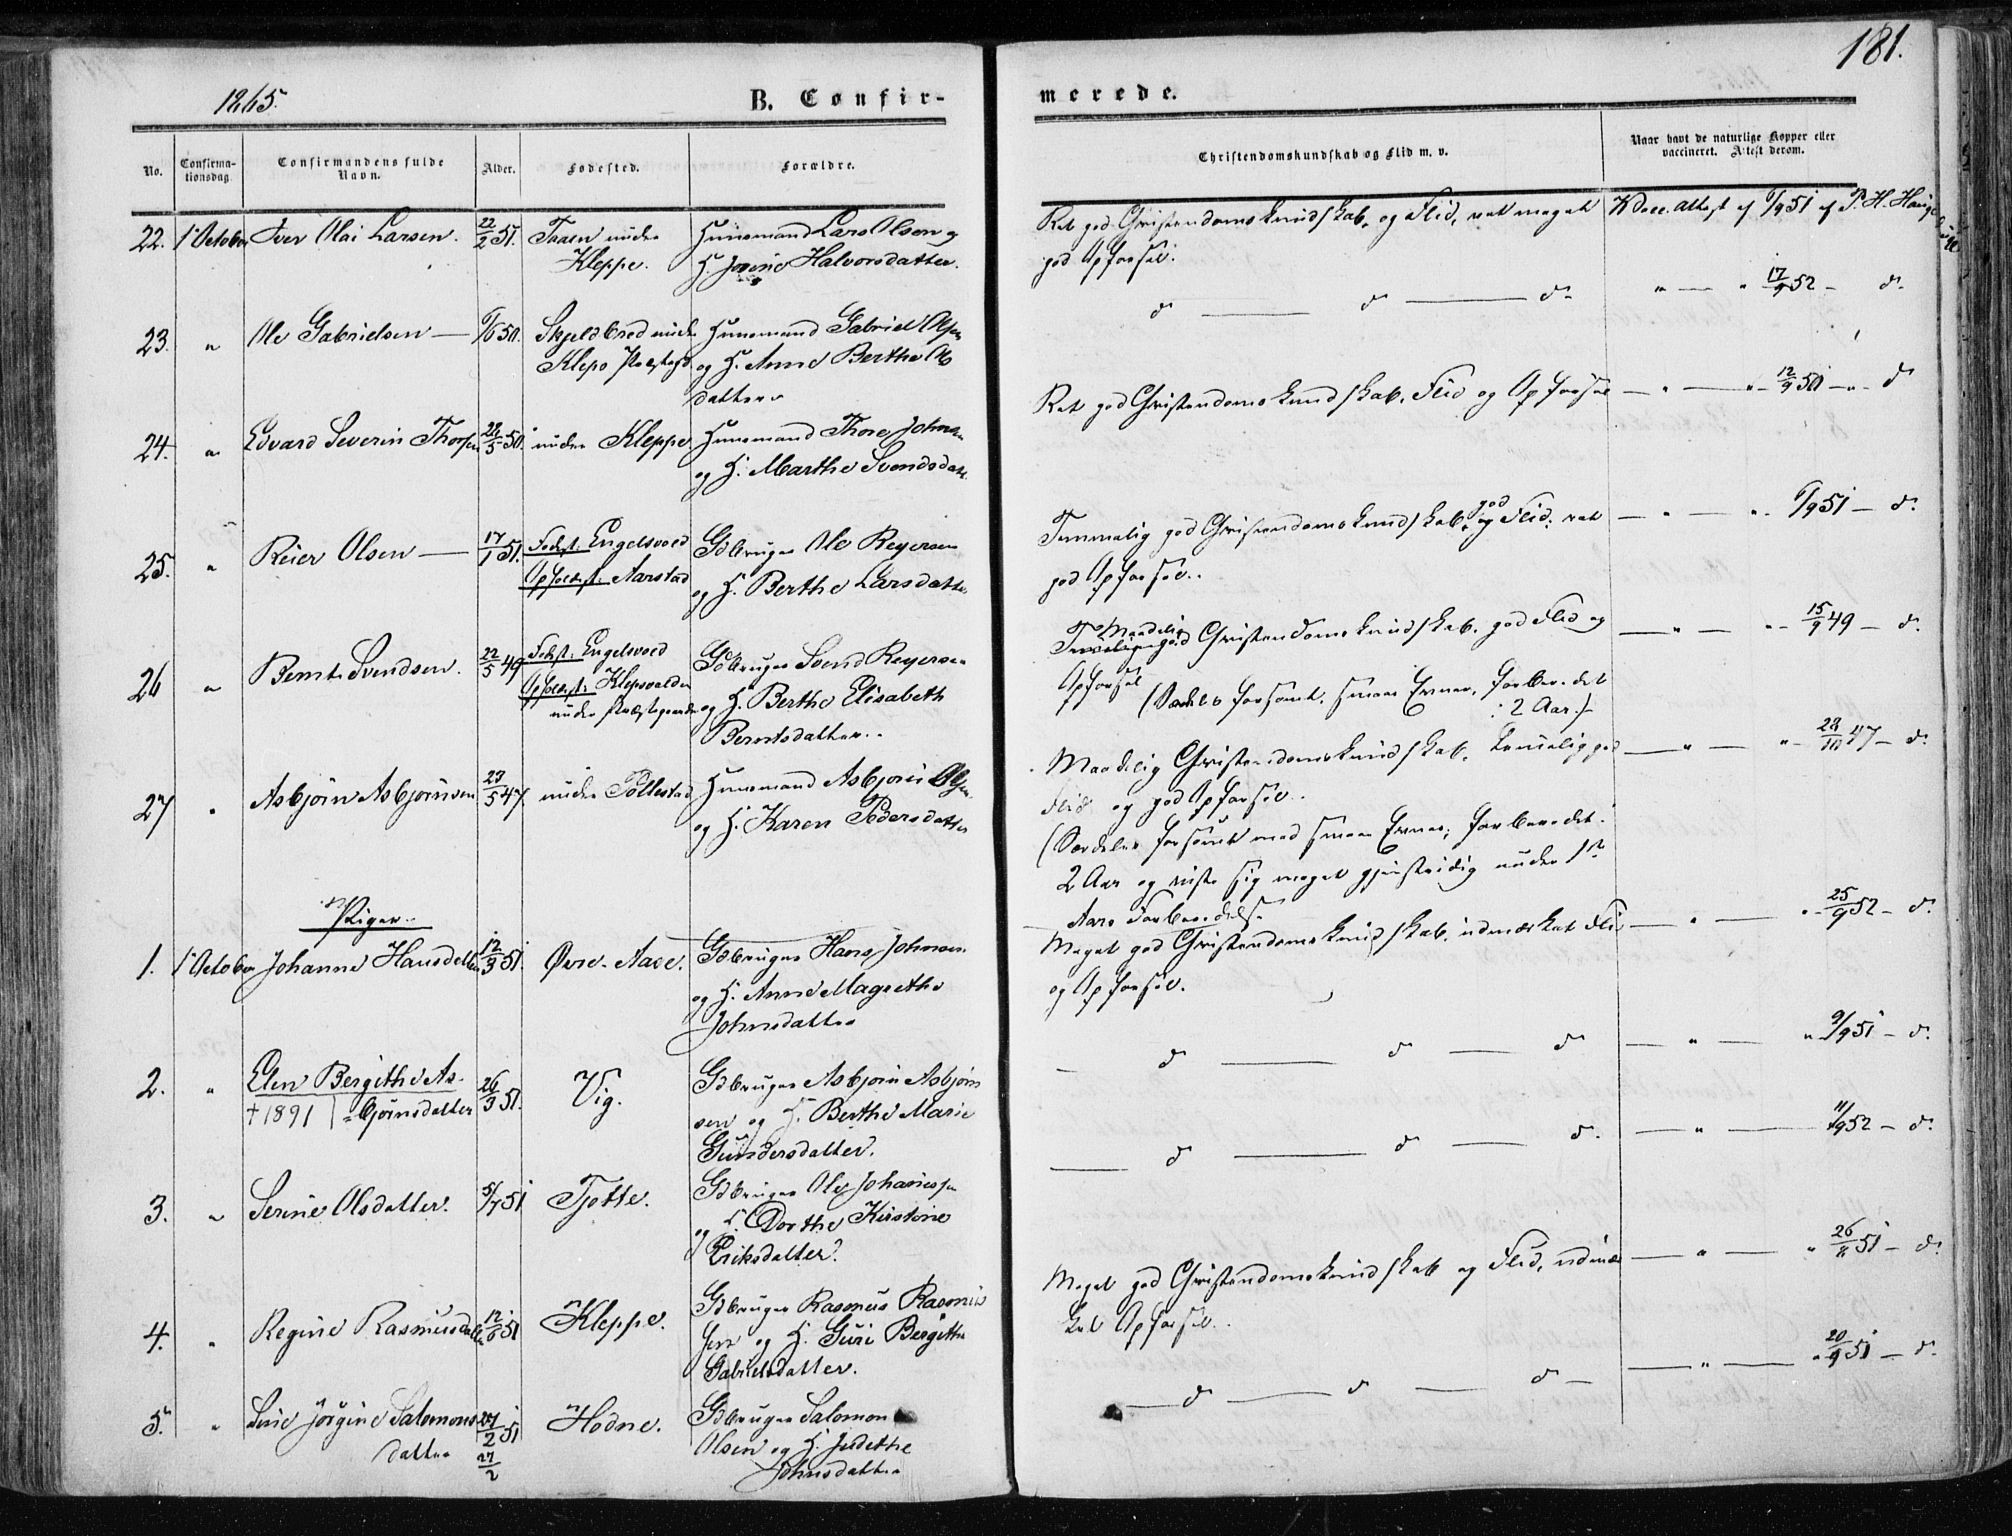 181.
1865.
B. Confir-
merede.
No.
Confirma-
tionsdag.
Confirmandens fulde
Navn.
Alder.
Fødested.
Forældre.
Christendomskundskab og Flid m. v.
Naar havt de naturlige Kopper eller
vaccineret. Attest derom.
22. 1 October Iver Olai Larsen. 22/2 51. Taaen under Huusmand Lars Olsen og
Kleppe. H. Halvorsdatter.
Ret god Christendomskundskab, og Flid, ret meget
god Opførsel.
Vacc. attest af 6/9 51 af P. H. Hauge
23. " Ole Gabrielsen — 50. under Huusmand Gabriel Olsen
Klepp Præstegd. og H. Anne Berthe Ols
datter
d — d — d. " — " 17/9 52 — d.
24. " Edvard Severin Thorsen 28/5 50. under Kleppe. Huusmand Thore Johnsen
og H. Marthe Svendsdatt.
Ret god Christendomskundskab, Flid og Opførsel — " — " 12/9 51 — " d
25. " Reier Olsen — 17/1 51. Fødst. Engelsvold Gdbruger Ole Reyersen
Opholdst. Aarstad og H. Berthe Larsdatter
Temmelig god Christendomskundskab, god og Flid, ret
god Opførsel.
— " — " 6/9 51 — d.
26 " Bernt Svendsen. 22/5 49 Fødst. Engelsvold Gdbruger Svend Reyersen
Opholdst. Klepsvolden og H. Berthe Elisabeth
under Præstegaarden Berntsdatter.
Maadelig
god Christendomskundskab, god Flid og
Opførsel
(Særdeles forsømt, smaae Evner, forberedet
2 Aar.)
— " — " 15/9 49 — d.
27 " Asbjörn Asbjörnsen 23/5 47. under Pollestad Huusmand Asbjörn Olsen
og H. Karen Pedersdatter
Maadelig Christendomskundskab, temmelig god
Flid og god Opførsel.
(Særdeles forsømt med smaae Evner, forberedet
2 Aar og viste sig meget gjenstridig under 1ste
Aars Forberedelse.
— " — " 28/10 47 — d.
Piger
1. 1 October Johanne Hansdatter 12/3 51. Øvre-Aase. Gdbruger Hans Johnsen
og H. Anne Magrethe
Johnsdatter
Meget god Christendomskundskab, udmærket Flid
og Opførsel.
— " — " 25/9 52 — d.
2. " Elen Bergithe As- 26/3 51. Vig. Gdbruger Asbjörn Asbjörn
† 1891 =bjørnsdatter sen og H. Berthe Marie
Gundersdatter.
d — d — d — " — " 9/9 51 — d.
3. " Serine Olsdatter. 5/7 51 Tjøtte. Gdbruger Ole Johannessen
og H. Dorthe Kirstine
Eriksdatter.
— d — d — d. — " — 11/9 52 — d.
4. " Regine Rasmusdatter 12/6 51 Kleppe. Gdbruger Rasmus Rasmus
sen og H. Guri Bergitha
Gabrielsdatter.
Meget god Christendomskundskab og Flid, udmær
ket Opførsel.
— " — " 26/ 51 — d.
5. " Jørgine Salomons 27/2 51 Hodne. Gdbruger Salomon
datter 27/2 Olsen og H. Judethe
Johnsdatter
— d — d — d — — " — " 20/9 51 — d.